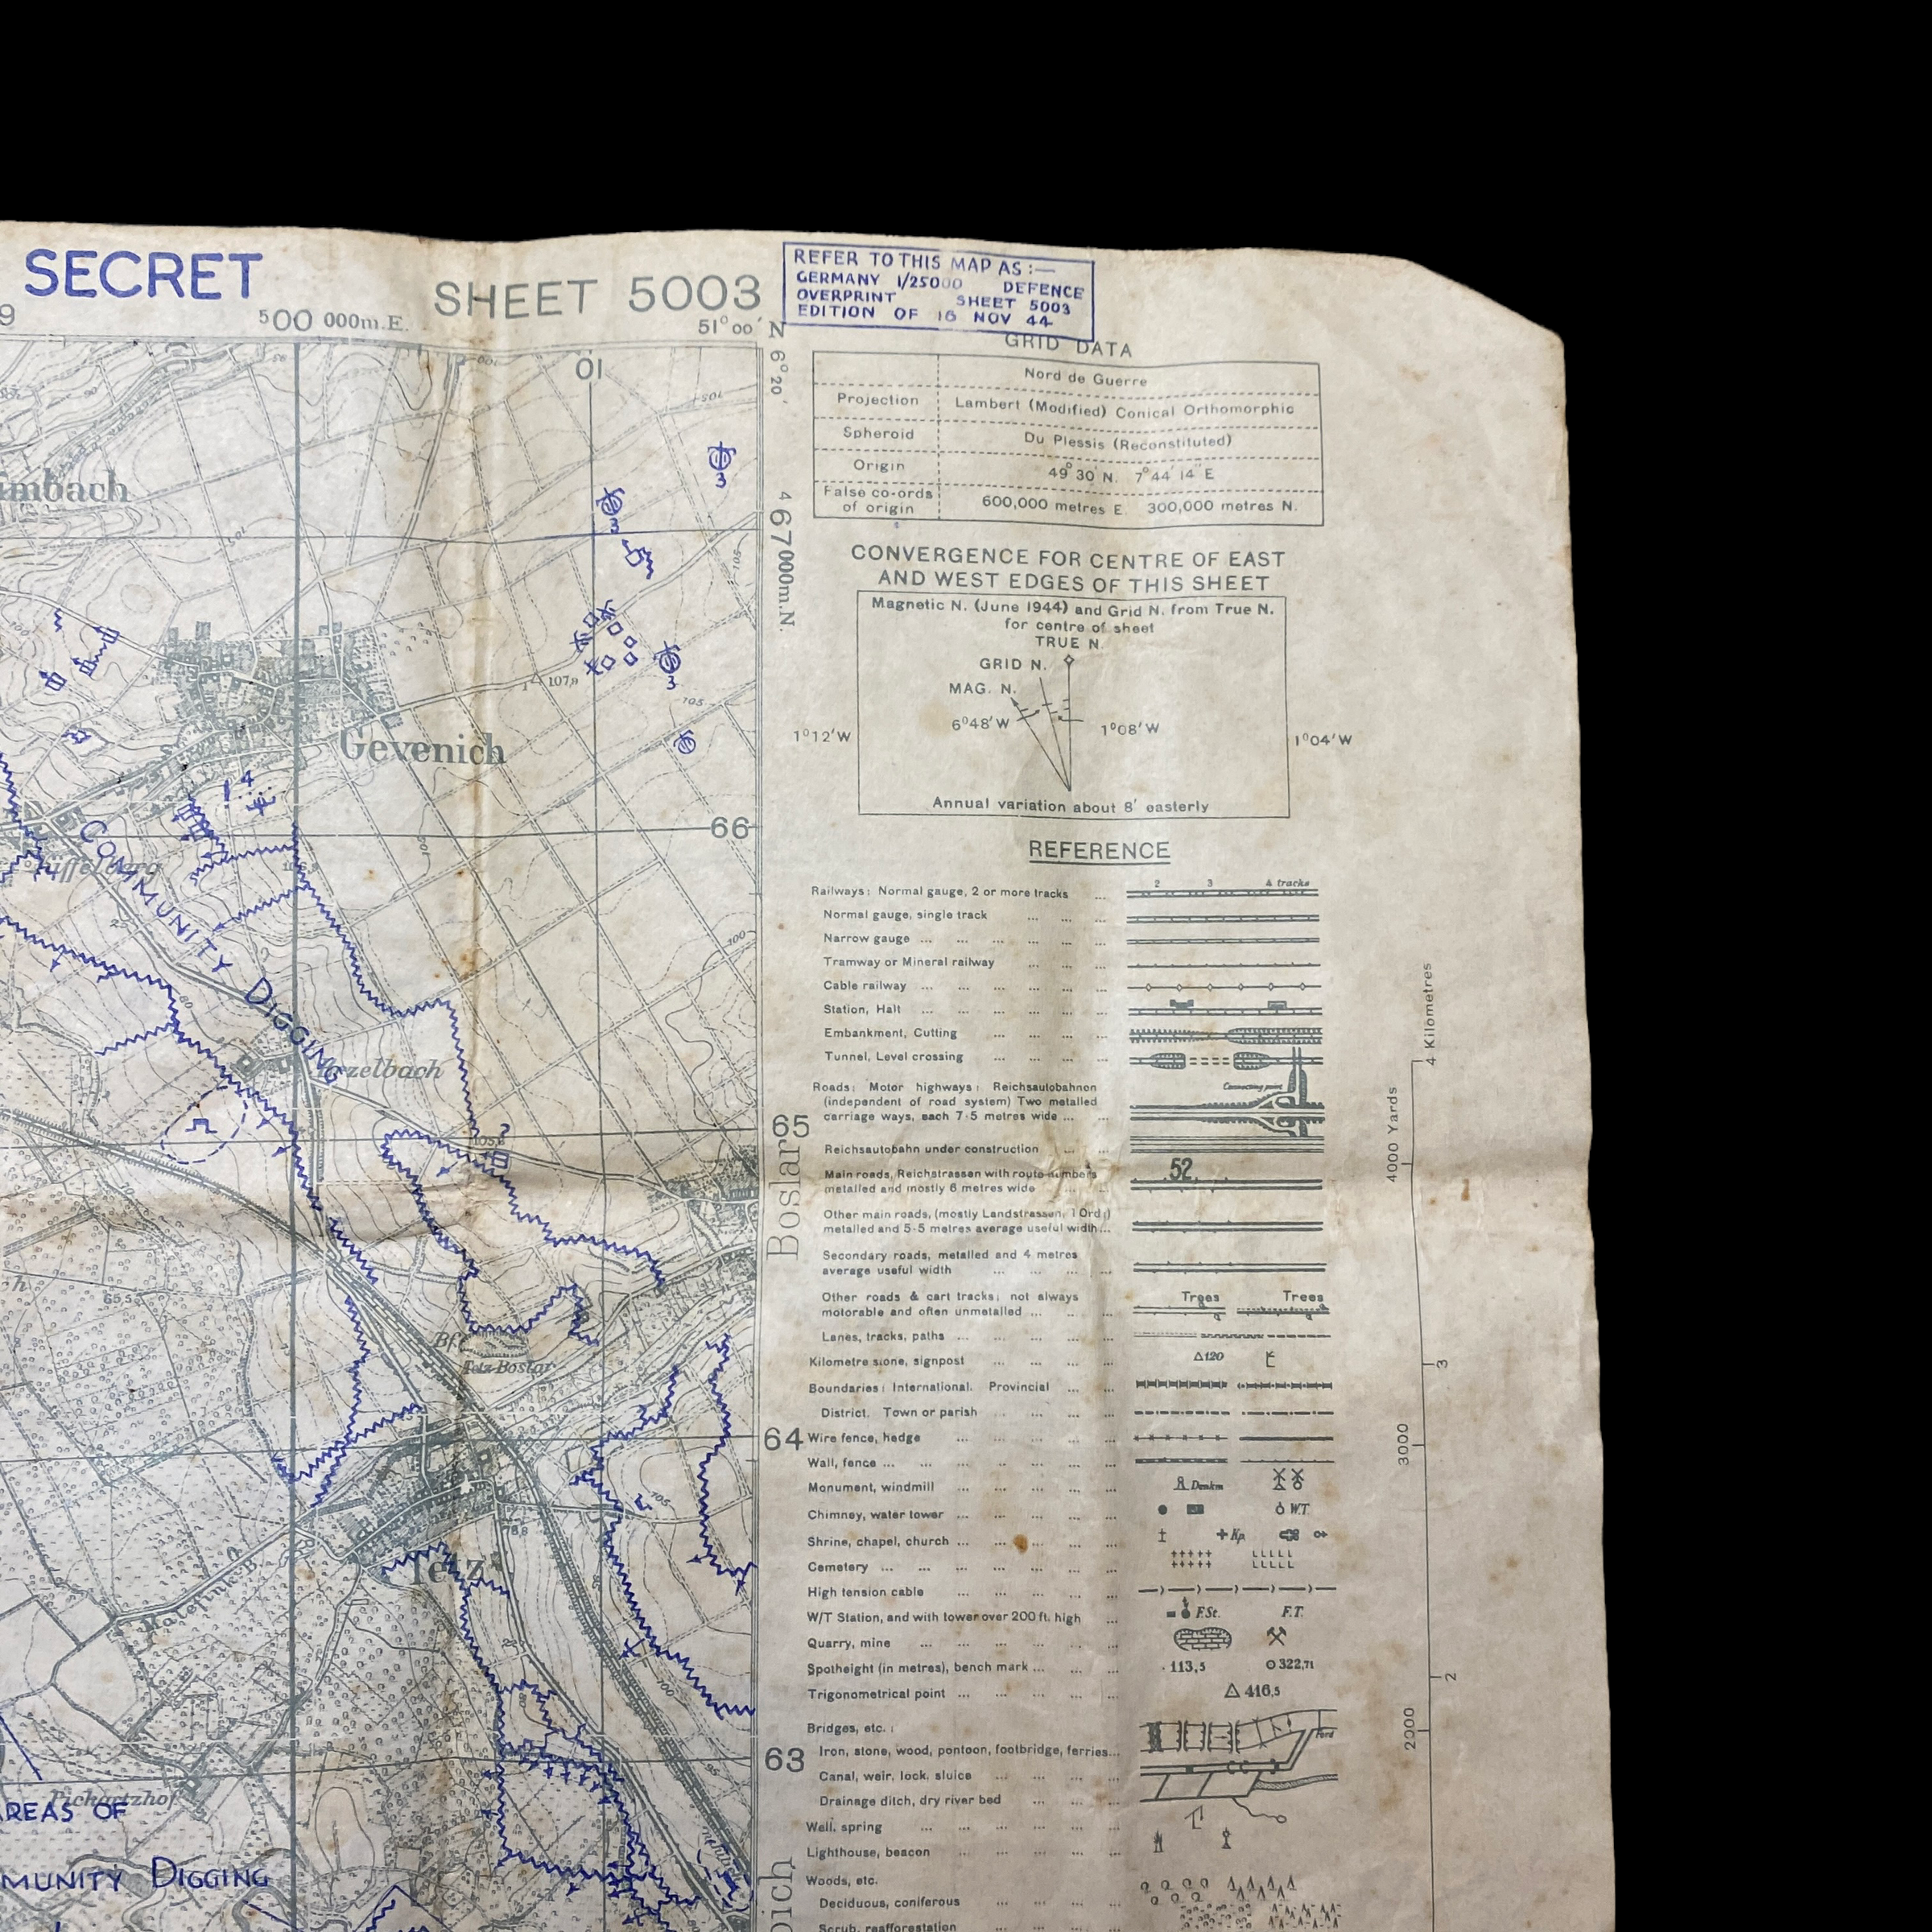 SECRET
SHEET 5003
REFER TO THIS MAP AS:—
GERMANY 1/25000 DEFENCE
OVERPRINT SHEET 5003
EDITION OF 16 NOV 44
9
500 000m.E.
51°00' N
6°20'
01
GRID DATA
Nord de Guerre
Projection Lambert (Modified) Conical Orthomorphic
Spheroid Du Plessis (Reconstituted)
Origin 49°30' N. 7°44' 14" E
False co-ords of origin 600,000 metres E. 300,000 metres N.
CONVERGENCE FOR CENTRE OF EAST
AND WEST EDGES OF THIS SHEET
Magnetic N. (June 1944) and Grid N. from True N.
for centre of sheet
TRUE N.
GRID N.
MAG. N.
6°48'W
1°08'W
1°12'W
1°04'W
Annual variation about 8' easterly
467000m.N.
imbach
3
3
3
107,9
105
105
105
Gevenich
4
66
COMMUNITY DIGGING
100
zelbach
?
65
Boslar
65,5
h
Bf
Tetz-Boslar
64
105
78,8
Tetz
100
95
63
Pickartzhof
AREAS OF
MUNITY DIGGING
REFERENCE
Railways: Normal gauge, 2 or more tracks ... 2 3 4 tracks
Normal gauge, single track ... ... ...
Narrow gauge ... ... ... ... ...
Tramway or Mineral railway ... ... ...
Cable railway ... ... ... ... ... ...
Station, Halt ... ... ... ... ... ...
Embankment, Cutting ... ... ... ...
Tunnel, Level crossing ... ... ... ...
Roads: Motor highways: Reichsautobahnen
(independent of road system) Two metalled
carriage ways, each 7·5 metres wide ... ...
Connecting point
Reichsautobahn under construction ... ...
Main roads, Reichstrassen with route numbers
metalled and mostly 6 metres wide ... ...
52
Other main roads, (mostly Landstrassen, 1 Ord.)
metalled and 5·5 metres average useful width...
Secondary roads, metalled and 4 metres
average useful width ... ... ... ...
Other roads & cart tracks; not always
motorable and often unmetalled ... ... ...
Trees Trees
Lanes, tracks, paths ... ... ... ... ...
Kilometre stone, signpost ... ... ... ...
△120
Boundaries: International. Provincial ... ...
District. Town or parish ... ... ...
Wire fence, hedge ... ... ... ... ...
Wall, fence ... ... ... ... ... ...
Monument, windmill ... ... ... ... ...
Denkm
Chimney, water tower ... ... ... ... ...
W.T.
Shrine, chapel, church ... ... ... ... ...
Kp.
Cemetery ... ... ... ... ... ...
High tension cable ... ... ... ... ...
W/T Station, and with tower over 200 ft. high ...
F.St. F.T.
Quarry, mine ... ... ... ... ...
Spotheight (in metres), bench mark ... ... ...
·113,5 322,71
Trigonometrical point ... ... ... ... ...
△ 416,5
Bridges, etc.:
Iron, stone, wood, pontoon, footbridge, ferries...
Ford
Canal, weir, lock, sluice ... ... ...
Drainage ditch, dry river bed ... ... ...
Well, spring ... ... ... ... ...
Lighthouse, beacon ... ... ... ... ...
Woods, etc.
Deciduous, coniferous ... ... ... ...
Scrub, reafforestation ... ... ... ...
4 Kilometres
4000 Yards
3
3000
2
2000